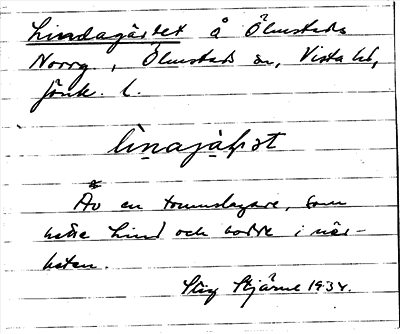 Lindagärdet å Ölmstads
Norrg, Ölmstads sn, Vista hd,
Jönk. l.
li̠najạ̈ḥət
Av en trumslagare, som
hette Lind och bodde i när-
heten.
Stig Stjärne 1934.